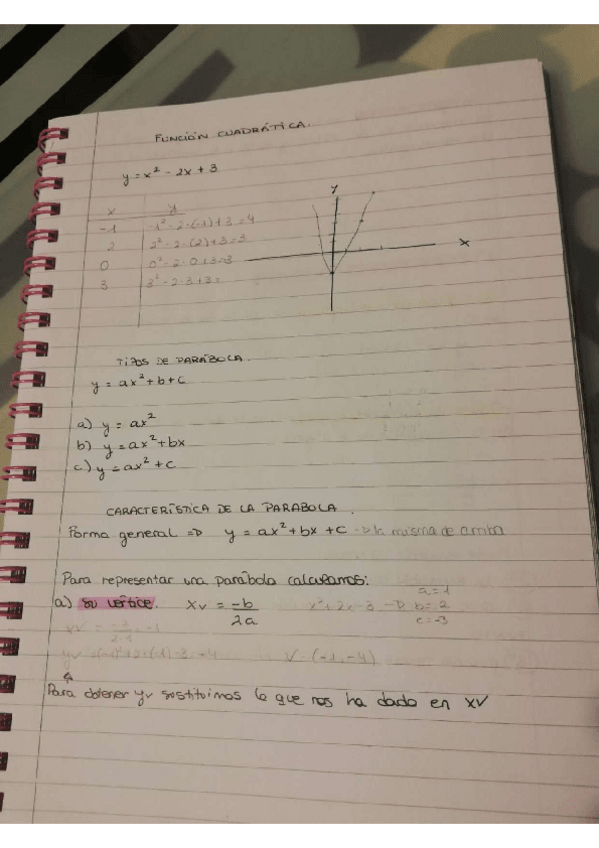 FUNCIÓN CUADRÁTICA.
y = x² - 2x + 3
x y
-1 -1² - 2·(-1)+3 = 4
2 2² - 2·(2)+3 = 3
0 0² - 2·0+3 = 3
3 3² - 2·3+3 =
y
x
TIPOS DE PARÁBOLA.
y = ax² + b + c
a) y = ax²
b) y = ax² + bx
c) y = ax² + c
CARACTERÍSTICA DE LA PARABOLA.
Forma general => y = ax² + bx + c -> la misma de arriba
Para representar una parábola calculamos:
a) su vértice. Xv = -b/2a x² + 2x - 3 -> a = 1
b = 2
c = -3
xv = -2/2·1 = -1
yv = (-1)² + 2·(-1) - 3 = -4 V = (-1, -4)
Para obtener yv sustituimos lo que nos ha dado en xv